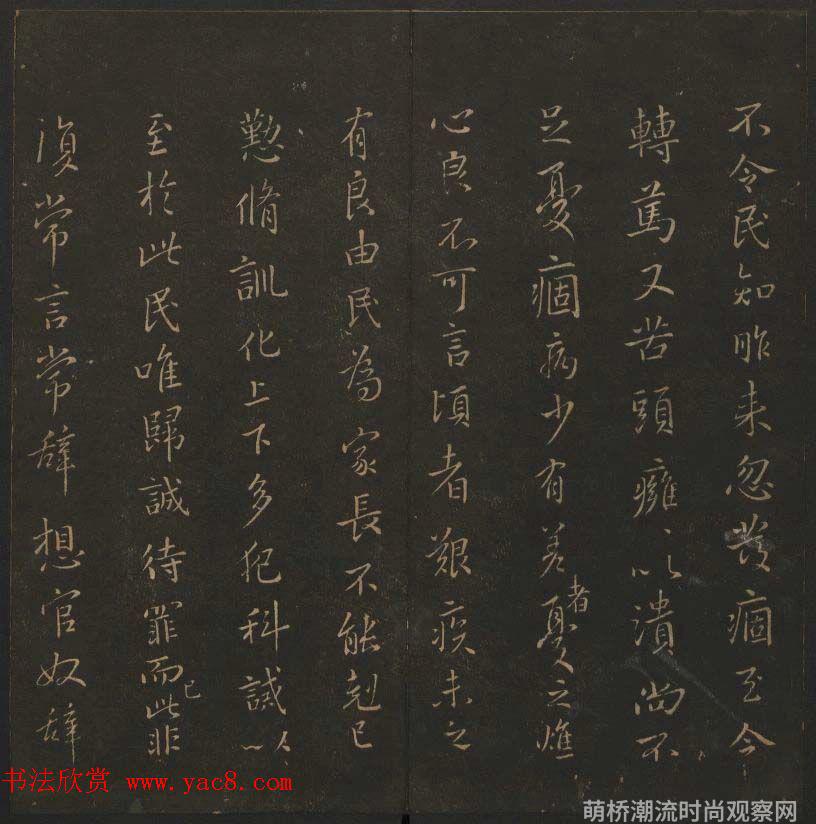 不令民知昨来忽發痼至今
轉篤又苦頭癰、以潰尚不
足憂痼病少有差者憂之燋
心良不可言頃者艱疾未之
有良由民為家長不能剋己
懃脩訓化上下多犯科誡以
至於此民唯歸誠待罪而已此非
復常言常辭想官奴辭
书法欣赏 www.yac8.com
萌桥潮流时尚观察网